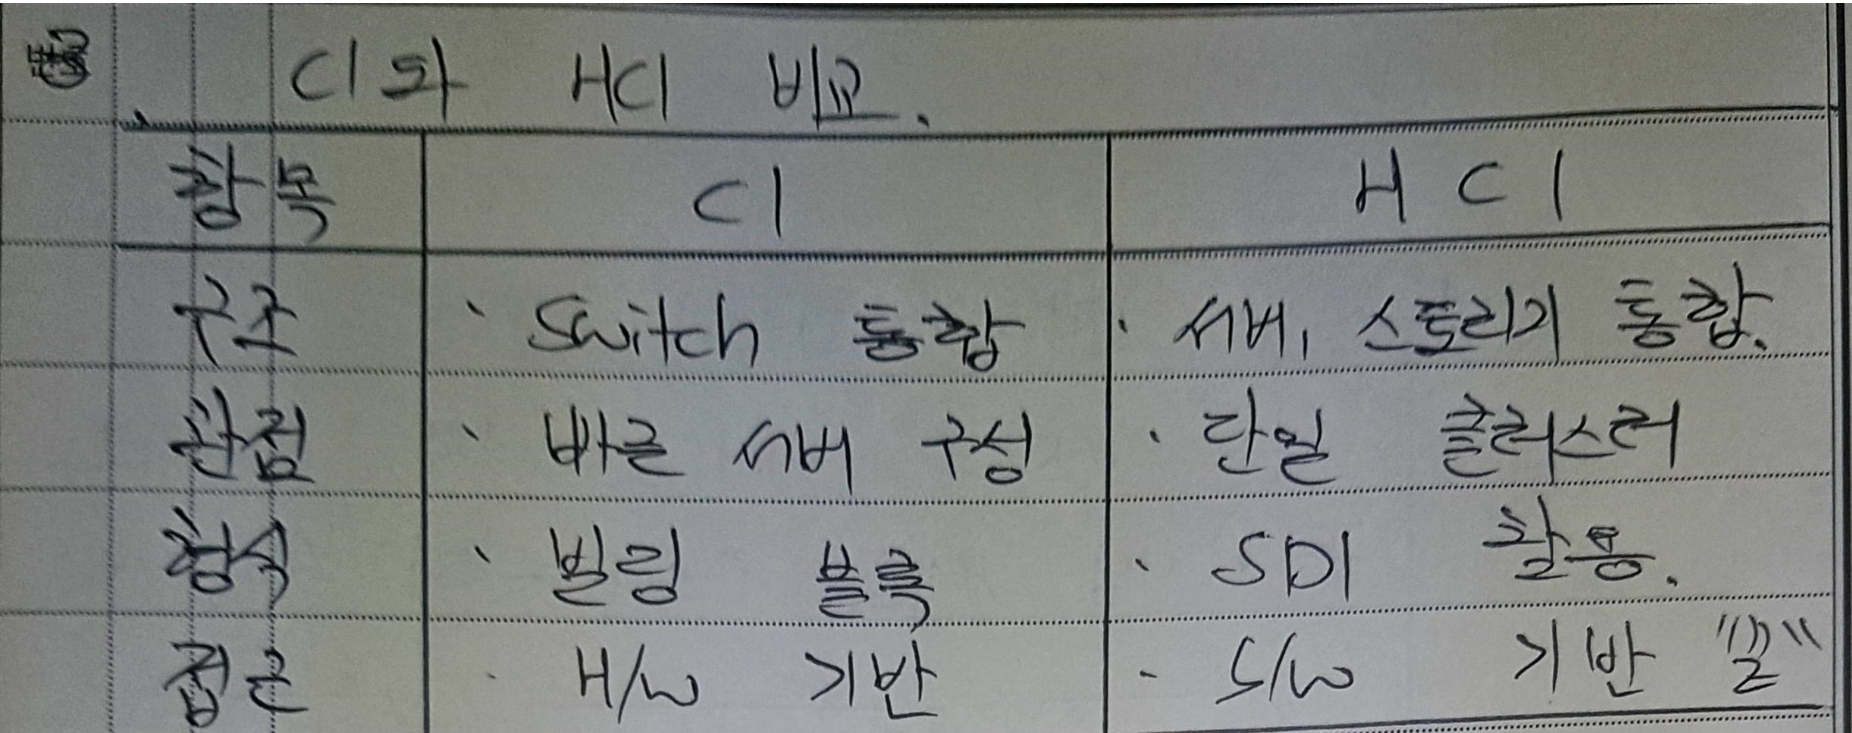 CI와 HCI 비교.
항목 CI HCI
구조 · Switch 통합 · 서버, 스토리지 통합.
관점 · 빠른 서버 구성 · 단일 클러스터
· 빌링 블록 · SDI 활용.
접근 · H/W 기반 · S/W 기반 "끝"